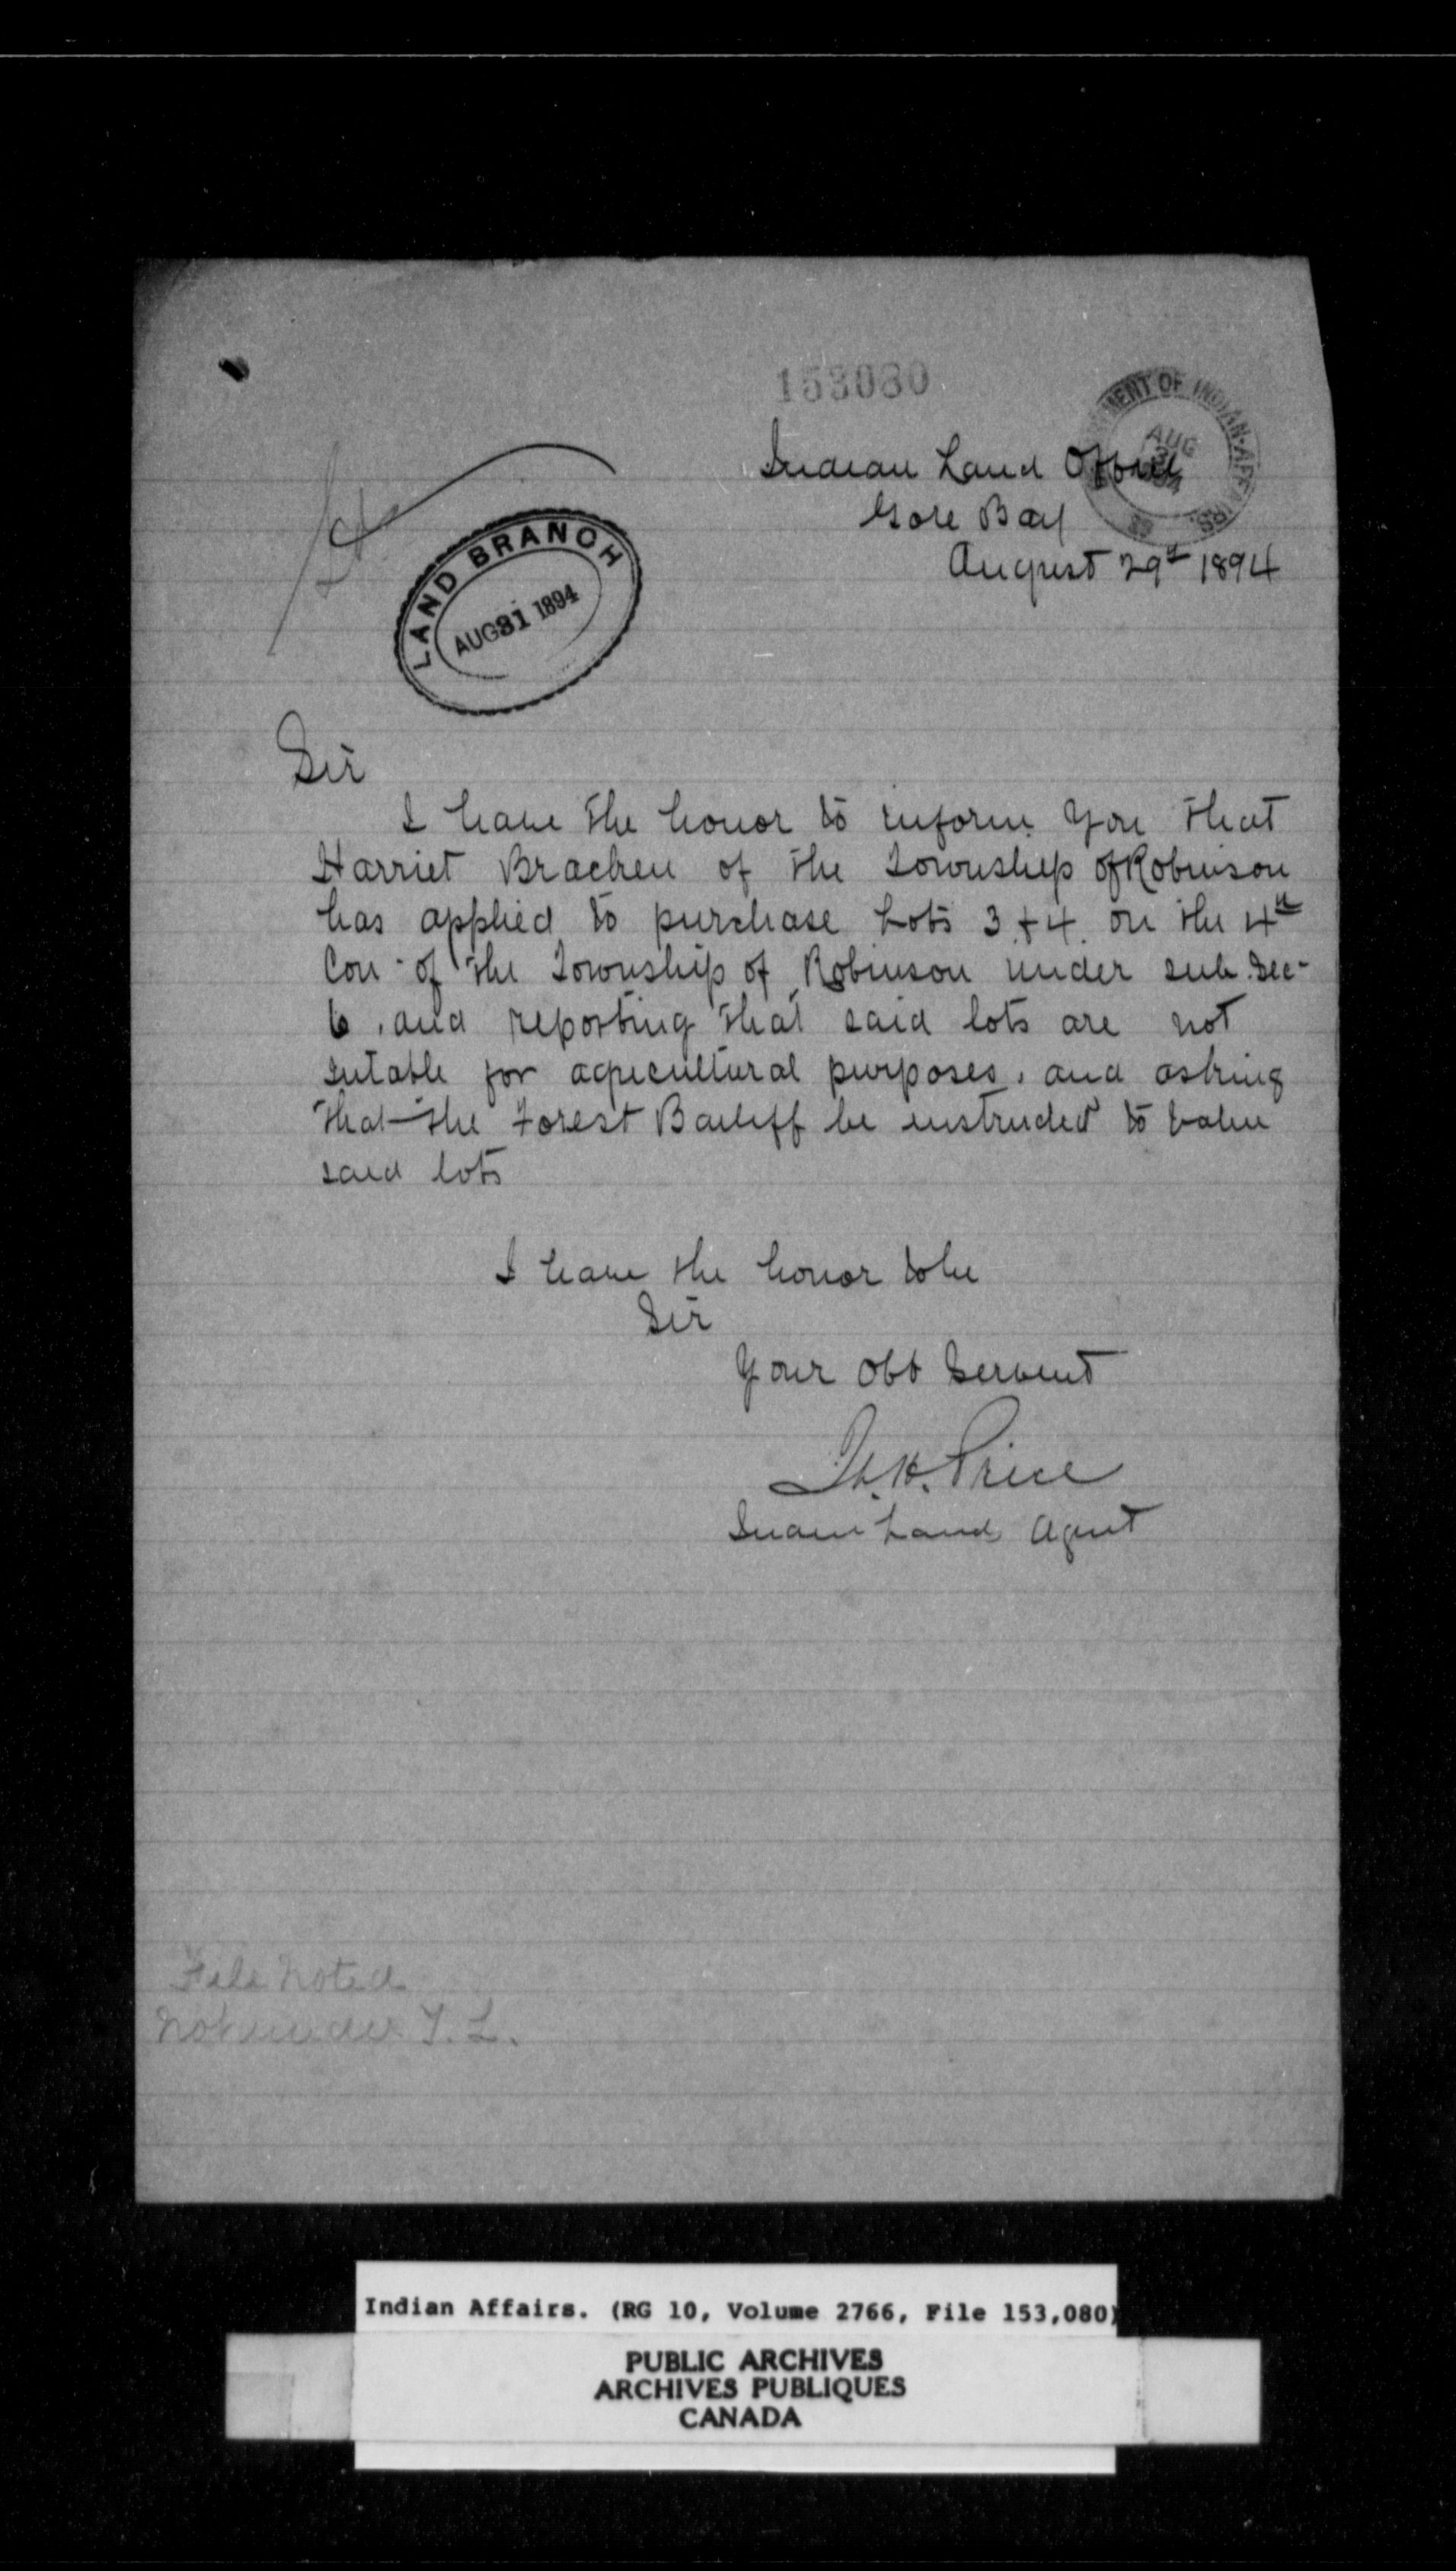 153080
DEPARTMENT OF INDIAN AFFAIRS.
AUG 31 1894
Indian Land Office
Gore Bay
August 29th 1894
LAND BRANCH
AUG 31 1894
Sir
I have the honor to inform you that
Harriet Bracken of the Township of Robinson
has applied to purchase Lots 3 & 4 on the 4th
Con of the Township of Robinson under sub Sec-
6, and reporting that said lots are not
sutable for agricultural purposes, and asking
that the Forest Bailiff be instructed to value
said lots
I have the honor to be
Sir
Your Obt Servent
Price
Indian Land Agent
File noted
Not under T. L.
Indian Affairs. (RG 10, Volume 2766, File 153,080)
PUBLIC ARCHIVES
ARCHIVES PUBLIQUES
CANADA